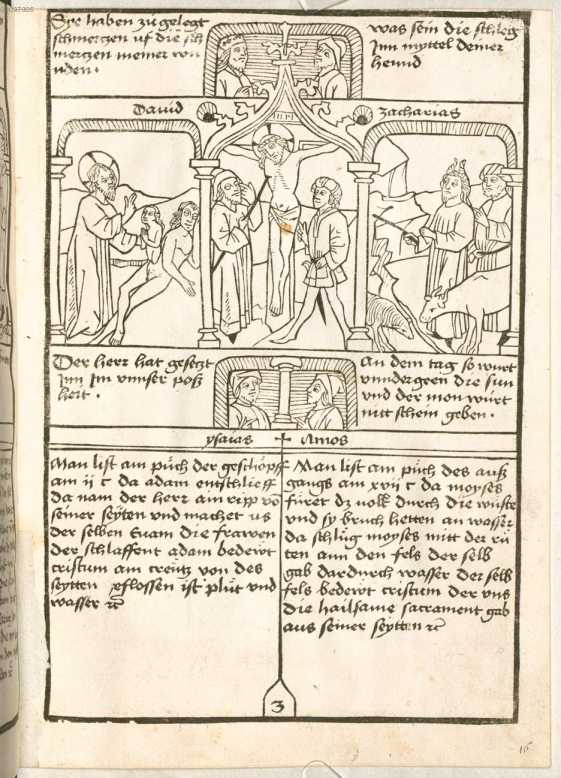 Sye haben zu gelegt
schmertzen uf die sch
mertzen meiner von
uden ·
was sein die schleg
Jnn myttel deiner
hennd
Dauid
Zacharias
INRI
Der herr hat gesetzt
Jnn Jm vnnser poß
heit ·
An dem tag so wurt
vnndergeen die sun
vnd der mon wurt
nitt schein geben ·
ysaias
Amos
Man list am půch der geschöpff
am ij c da adam entschlieff
da nam der herr ain ripp vō
seiner seyten vnd machet us
der selben Euam die frawen
der schlaffent adam bedewt
cristum am creütz von des
seytten geflossen ist plůt vnd
wasser ꝛc̄
Man list am půch des auß
gangs am xvij c da moyses
füret dz volk durch die wüste
vnd sy bruch hetten an wasser
da schlůg moyses mitt der rů
ten ann den fels der selb
gab dardurch wasser der selb
fels bedewt cristum der vns
die hailsame sacrament gab
aus seiner seytten ꝛc̄
3
16